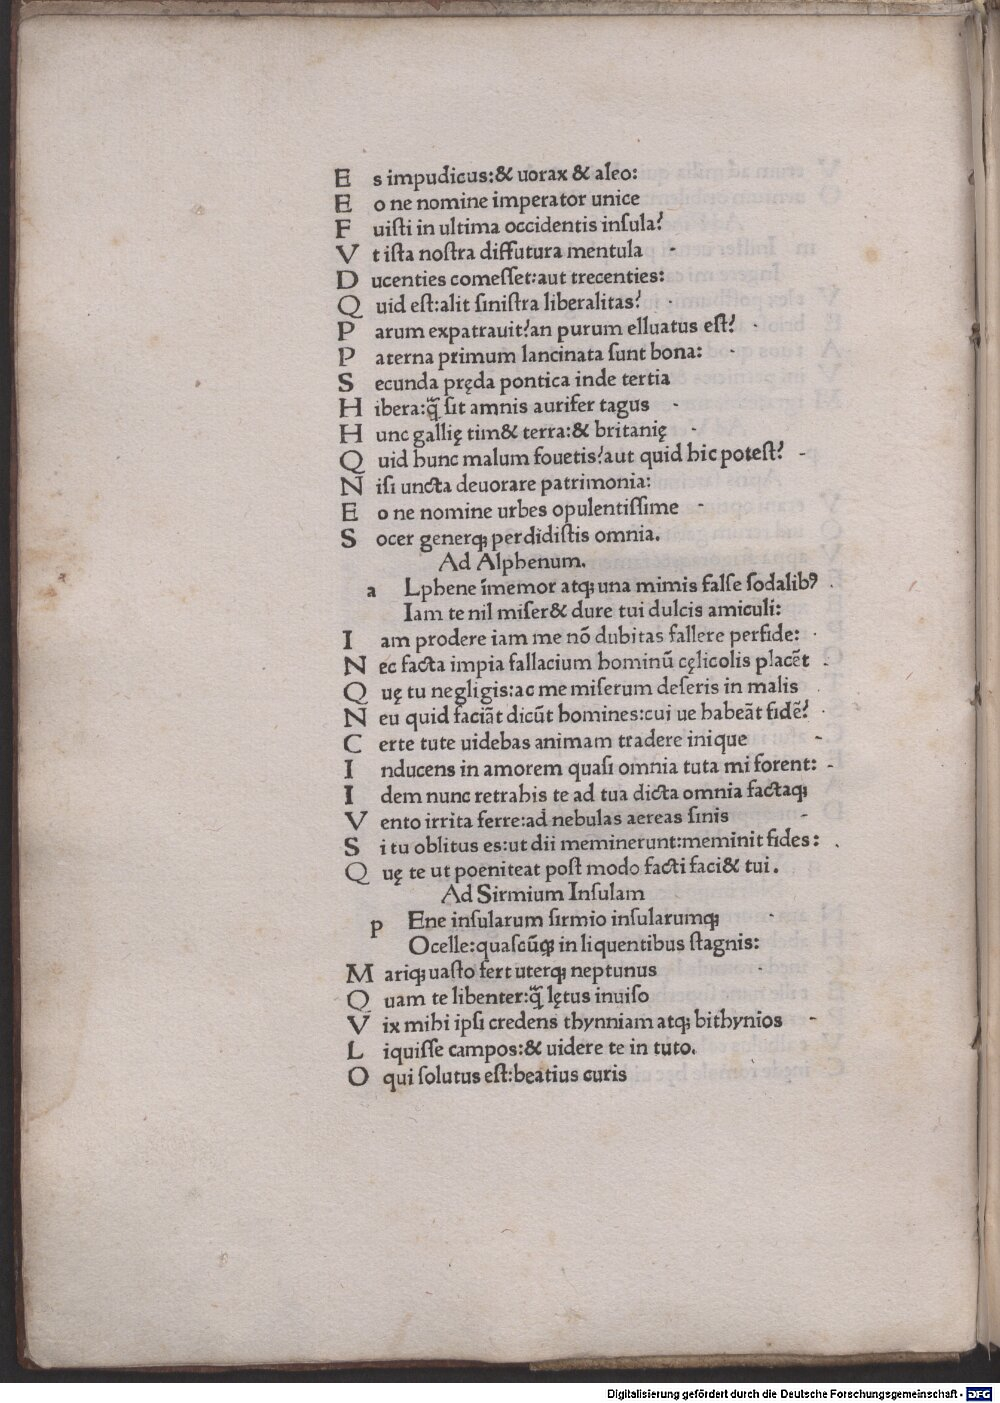 E s impudicus:& uorax & aleo:
E o ne nomine imperator unice
F uisti in ultima occidentis insula?
V t ista nostra diffutura mentula
D ucenties comesset:aut trecenties:
Q uid est:alit sinistra liberalitas?
P arum expatrauit?an purum elluatus est?
P aterna primum lancinata sunt bona:
S ecunda pręda pontica inde tertia
H ibera:q̃ sit amnis aurifer tagus
H unc gallię tim& terra:& britanię
Q uid hunc malum fouetis?aut quid hic potest?
N isi uncta deuorare patrimonia:
E o ne nomine urbes opulentissime
S ocer generq; perdidistis omnia.
Ad Alphenum.
a Lphene ĩmemor atq; una mimis false sodalibꝰ
Iam te nil miser& dure tui dulcis amiculi:
I am prodere iam me nõ dubitas fallere perfide:
N ec facta impia fallacium hominũ cęlicolis placẽt
Q uę tu negligis:ac me miserum deseris in malis
N eu quid faciãt dicũt homines:cui ue habeãt fidẽ?
C erte tute uidebas animam tradere inique
I nducens in amorem quasi omnia tuta mi forent:
I dem nunc retrahis te ad tua dicta omnia factaq;
V ento irrita ferre:ad nebulas aereas sinis
S i tu oblitus es:ut dii meminerunt:meminit fides:
Q uę te ut poeniteat post modo facti faci& tui.
Ad Sirmium Insulam
p Ene insularum sirmio insularumq;
Ocelle:quascũq; in liquentibus stagnis:
M ariq; uasto fert uterq; neptunus
Q uam te libenter:q̃ lętus inuiso
V ix mihi ipsi credens thynniam atq; bithynios
L iquisse campos:& uidere te in tuto.
O qui solutus est:beatius curis
Digitalisierung gefördert durch die Deutsche Forschungsgemeinschaft - DFG